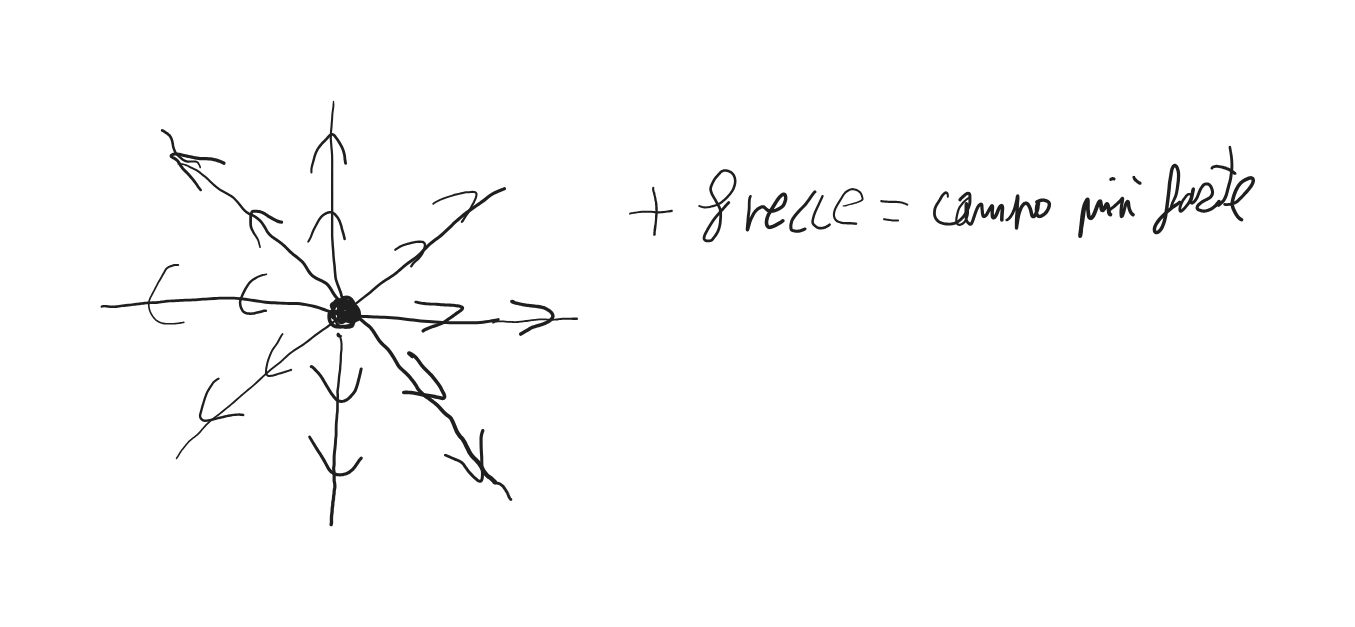 + frecce = campo più forte